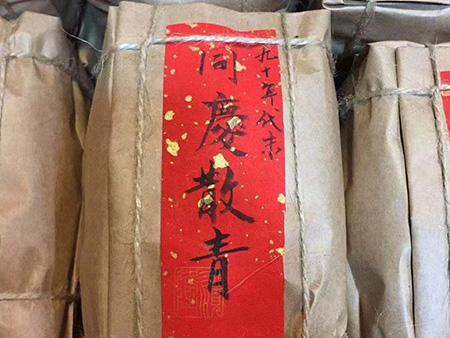 九十年代末
同慶散青